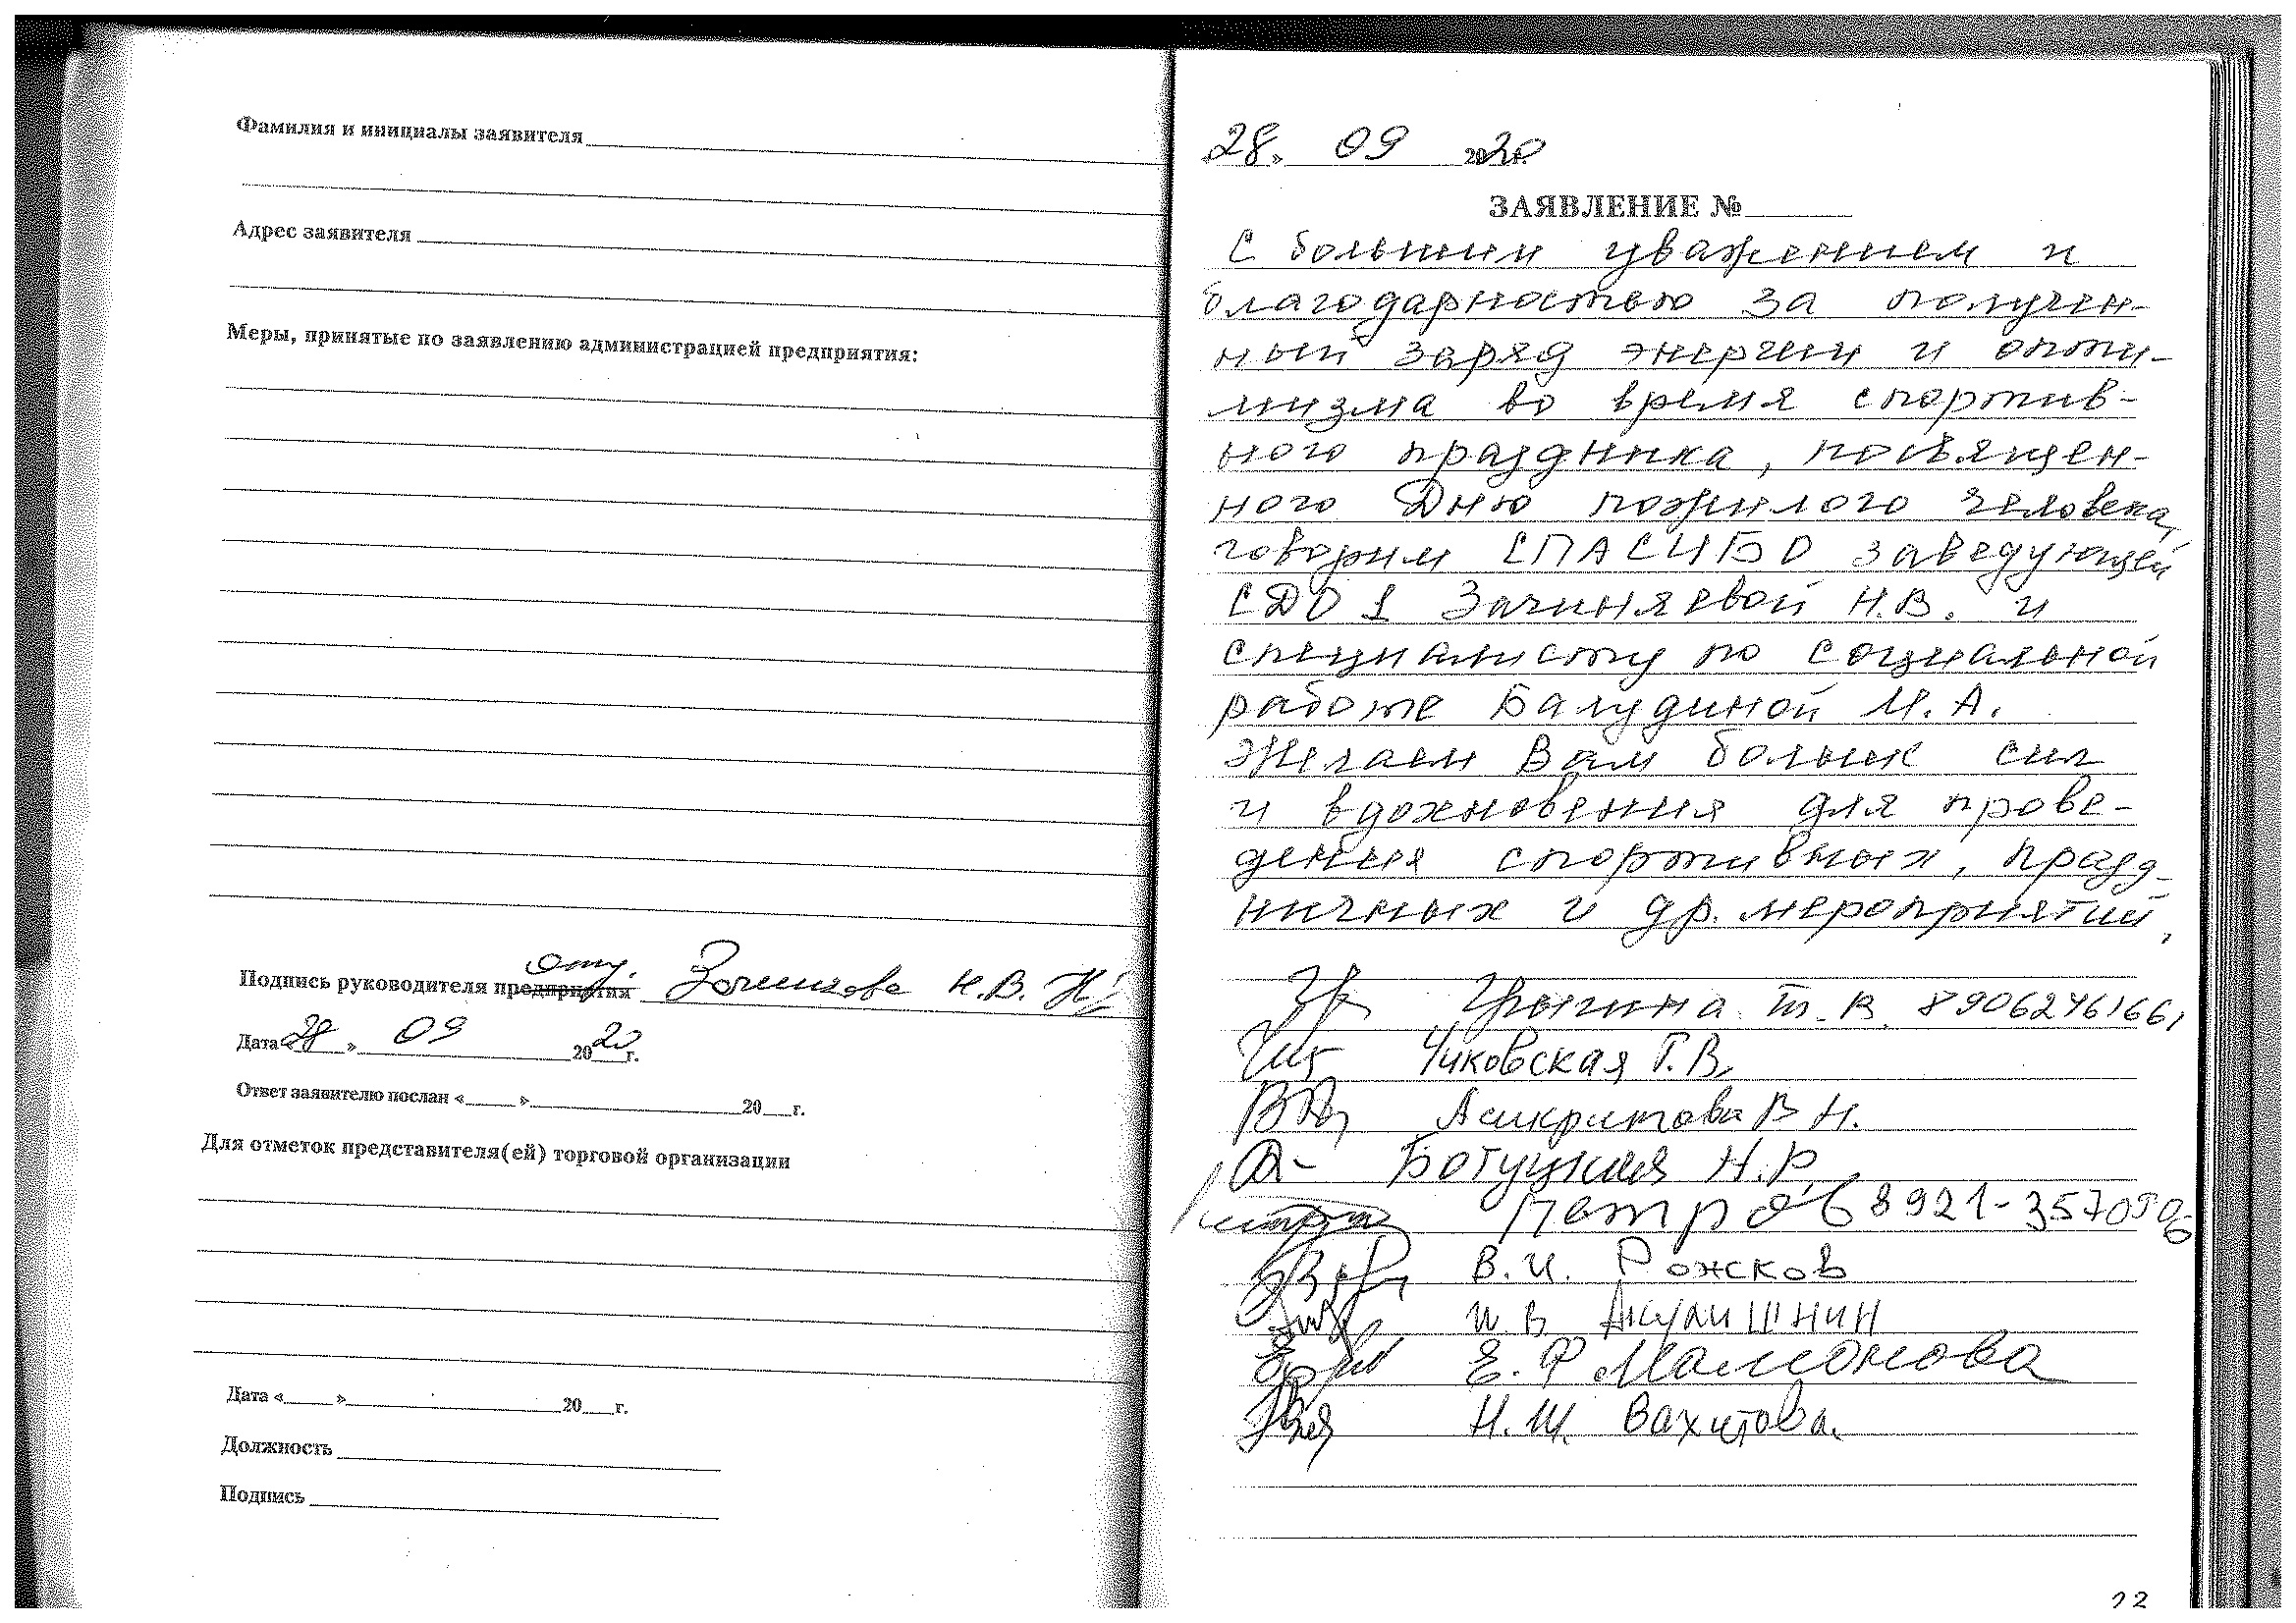 Фамилия и инициалы заявителя
Адрес заявителя
Меры, принятые по заявлению администрацией предприятия:
Подпись руководителя предприятия Н.В.
Дата «28» 09 2020г.
Ответ заявителю послан « » 20 г.
Для отметок представителя(ей) торговой организации
Дата « » 20 г.
Должность
Подпись
28. 09 2020
ЗАЯВЛЕНИЕ №
С большим уважением и
благодарностью за получен-
ный заряд энергии и опти-
мизма во время спортив-
ного праздника, посвящен-
ного Дню пожилого человека,
говорим СПАСИБО заведующей
СДО 1 Зачиняевой Н.В. и
специалисту по социальной
работе Балудиной М.А.
Желаем Вам больших сил
и вдохновения для прове-
дения спортивных, празд-
ничных и др. мероприятий,
Т.В. 89062461661
Чиковская Г.В.
Асикритова В Н.
Богуцкая Н.Р.
Петров 8921-
В.И. Рожсков
И В Акулишнин
Е.Ф Мамонова
Н.Ш. Вахитова.